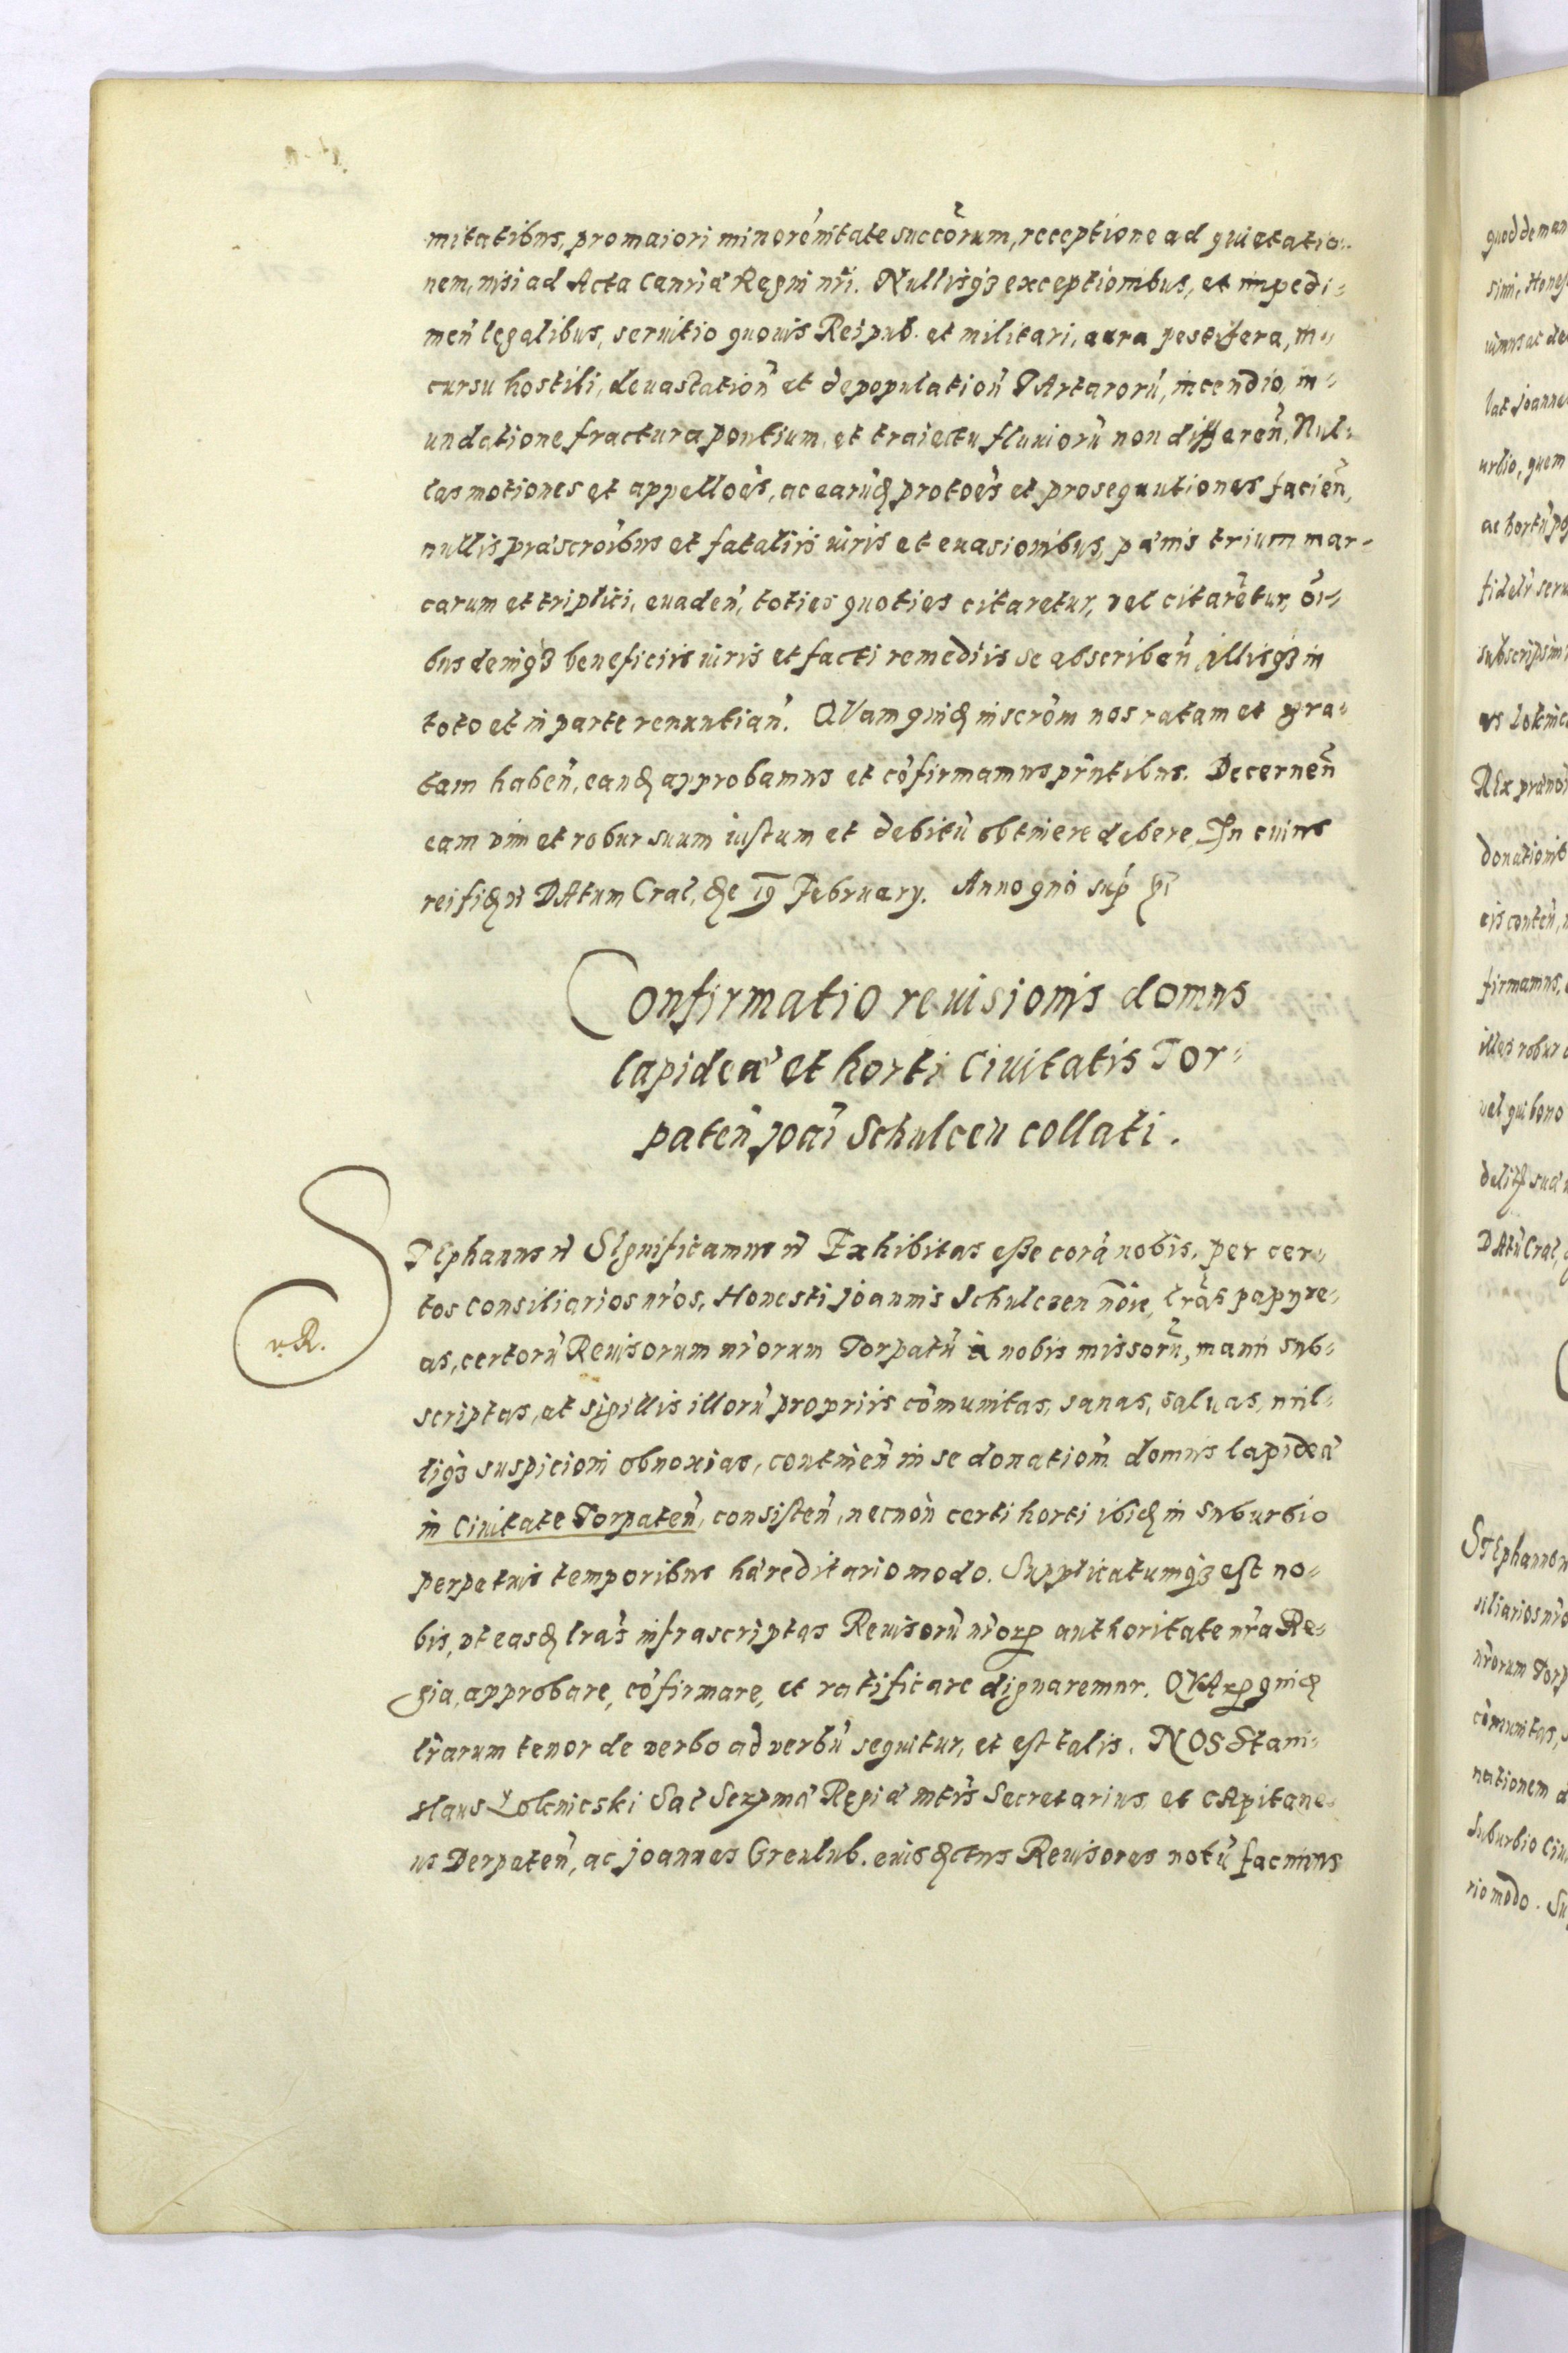 mitatibus, pro maiori minorẽnitate succõrum, receptione ad quietatio-
nem, nisi ad Acta Canriæ Regni nr̃i. Nullisq3 exceptionibus, et impedi-
men̄ legalibus, seruitio quouis Reipub. et militari, aura pestifera, in-
cursu hostili, deuastation̄ et depopulation̄ TArtarorū, incendio, in-
undatione fractura pontium, et traiectu fluuiorū non differen̄, Nul-
las motiones et appelloẽs, ac earūd. protoẽs et prosequutiones facien̄,
nullis præscrõibus et fataliis iuris et euasionibus, pænis trium mar-
carum et triplici, euaden̄, toties quoties citaretur, vel citarẽtur, õi-
bus deniq3 beneficiis iuris et facti remediis se abscriben̄ illisq3 in
toto et in parte renuntian̄. QVam quid. inscrõm nos ratam et gra-
tam haben̄, eand. approbamus et cõfirmamus pñtibus. Decernen̄
eam vim et robur suum iustum et debitū obtinere debere. In cuius
rei fid. DAtum Crac. die 19 February. Anno quo sup.
Confirmatio reuisionis domus
lapideæ et horti Ciuitatis Tor-
paten̄ joãi Schulcen collati.
STEphanus Significamus Exhibitas esse corā nobis, per cer-
tos Consiliarios nr̃os, Honesti joannis Schulczen nõie, lr̃as papyre-
v. R.
as, certorū Reuisorum nr̃orum Torpatū à nobis missorū, manu sub-
scriptas, et sigillis illorū propriis cõmunitas, sanas, saluas, nul-
liq3 suspicioni obnoxias, continen̄ in se donationẽ domus lapideæ
in Ciuitate Torpaten̄, consisten̄, necnon certi horti ibid. in suburbio
perpetuis temporibus hæreditario modo. Supplicatumq3 est no-
bis, vt easd. lr̃as infrascriptas Reuisorū nr̃or. authoritate nr̃a Re-
gia, approbare, cõfirmare, et ratificare dignaremur. QVAr. quid.
lr̃arum tenor de verbo ad verbū sequitur, et est talis. NOS Stani-
slaus Loknicski Sac Sermæ Regiæ mt̃is Secretarius et CApitane-
us Derpaten̄, ac joannes Grenlub. eiusd. Reuisores notū facimus